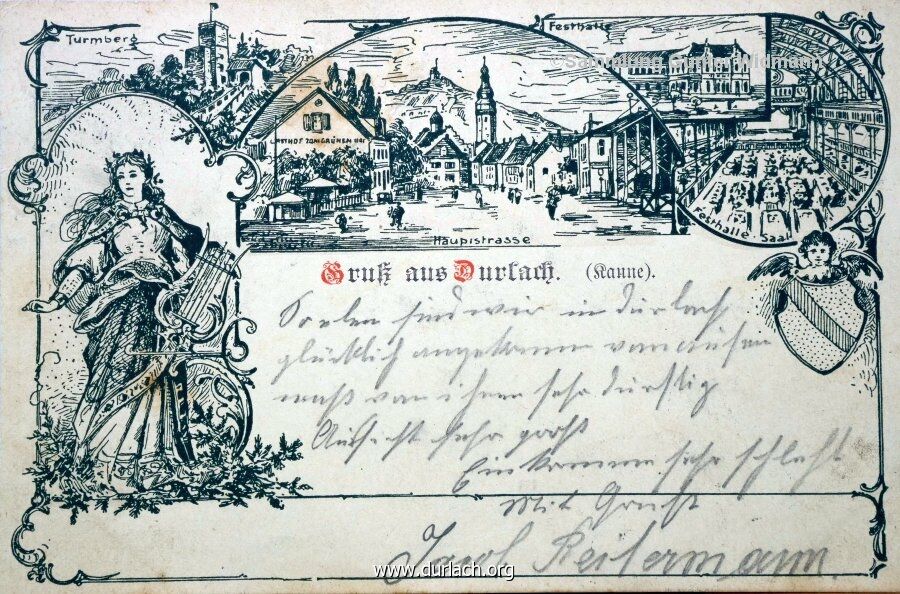 Turmberg
Festhalle
©Sammlung Günter Widmann
GASTHOF ZUM GRÜNEN HOF
Hauptstrasse
Festhalle-Saal
Gruß aus Durlach. (Kanne).
Soeben sind wir in Durlach
glücklich angekommen
von ihnen sehr durstig
Aussicht sehr groß
Einkommen sehr schlecht
Mit Gruß
Jacob
www.durlach.org